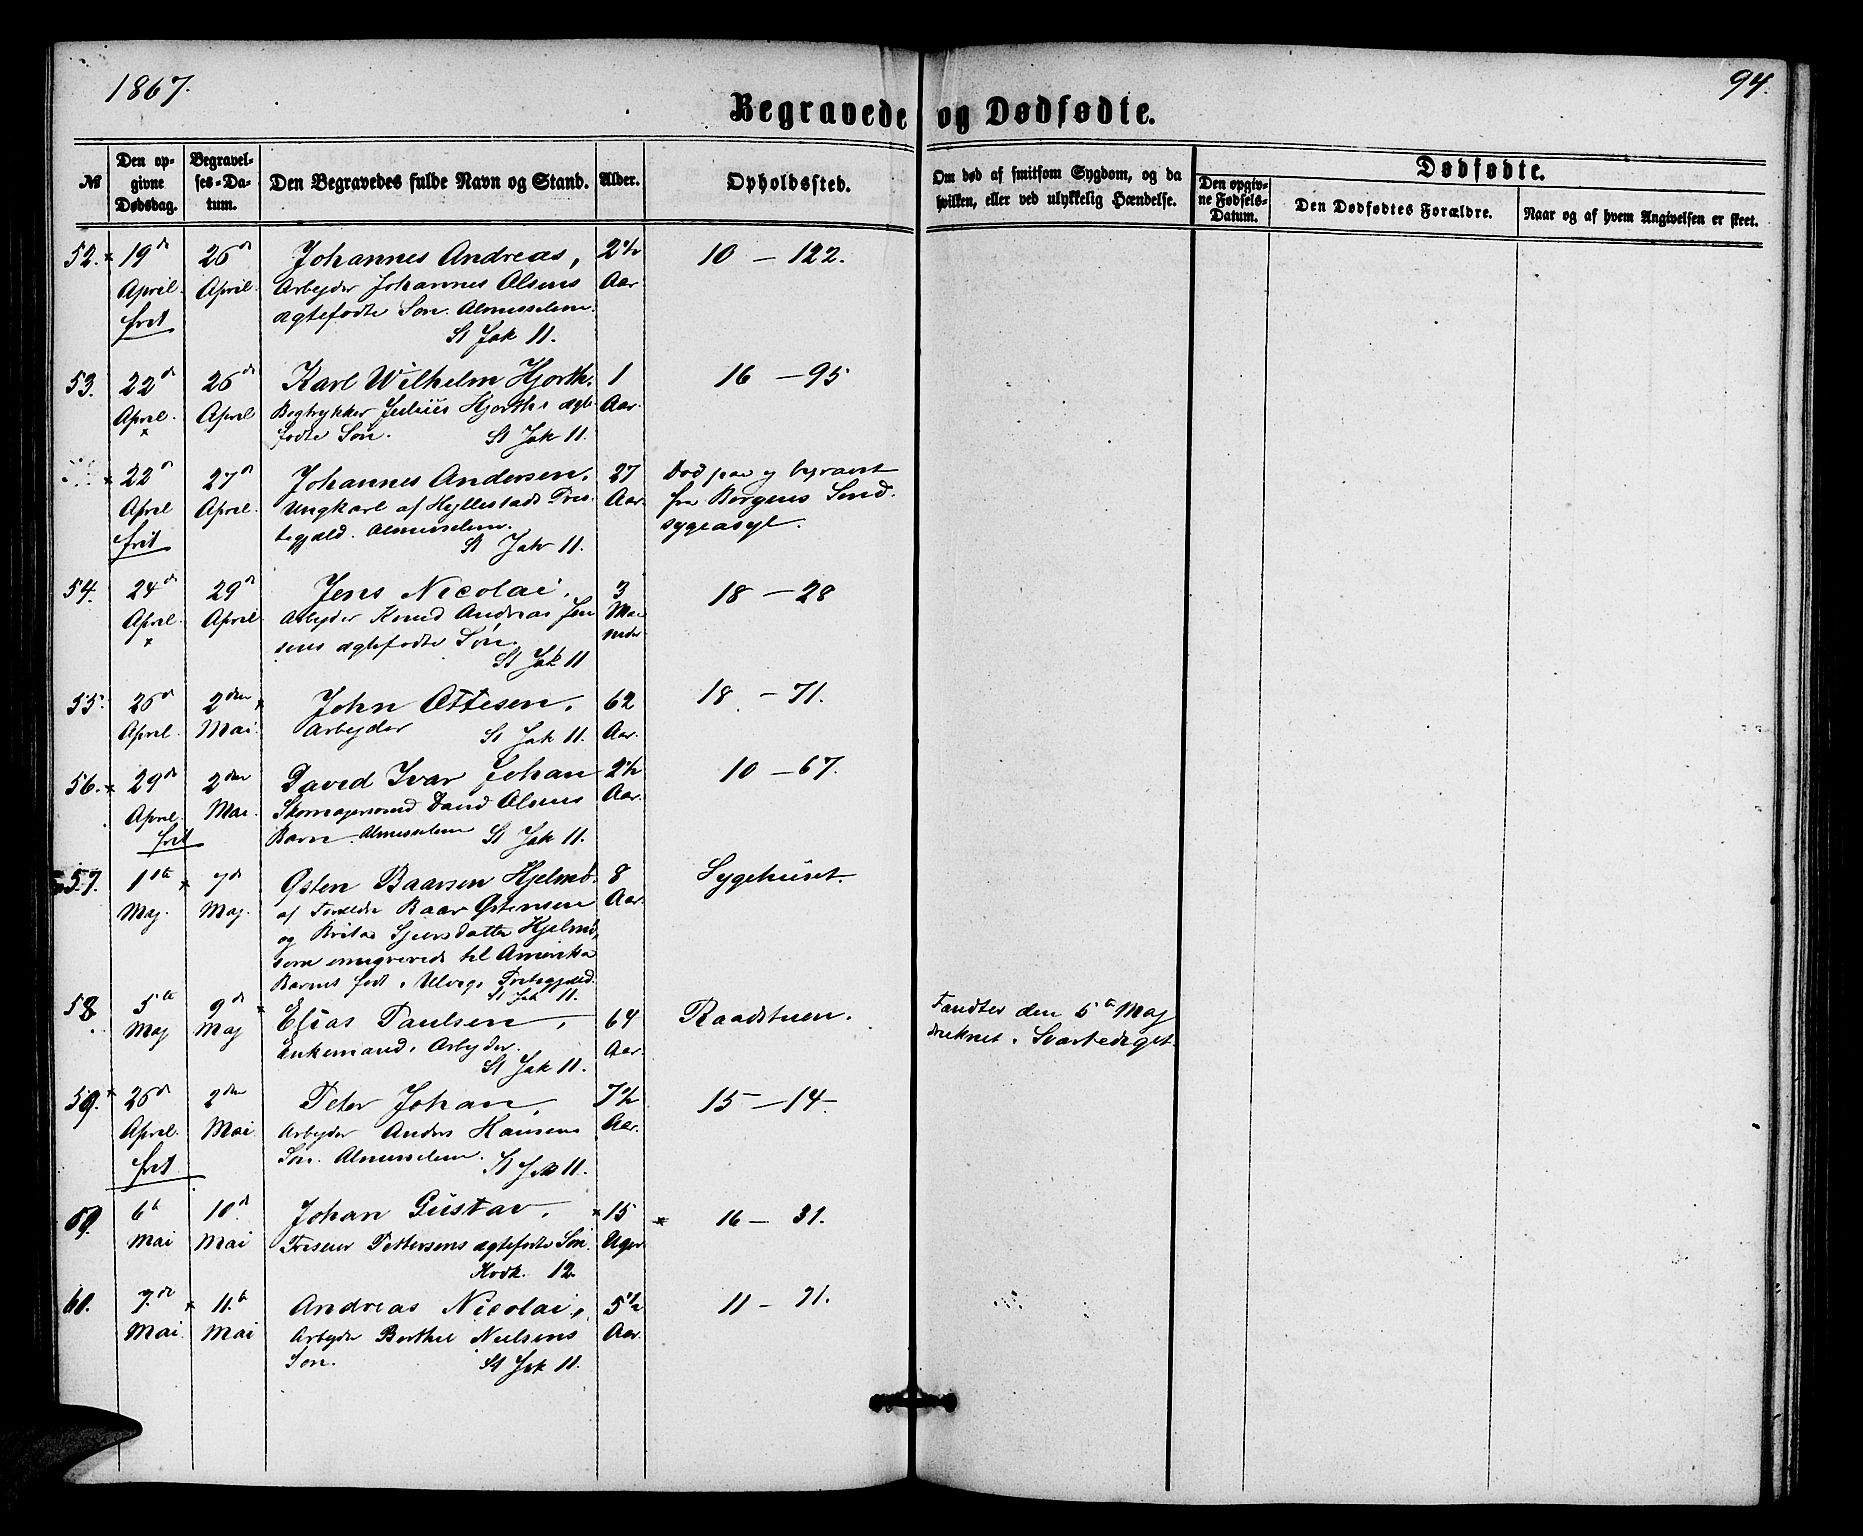 1867.
94.
Begravede og Dødfødte.
№
Den op-
givne
Dødsdag.
Begravel-
ses-Da-
tum.
Den Begravedes fulde Navn og Stand.
Alder.
Opholdssted.
Om død af smitsom Sygdom, og da
hvilken, eller ved ulykkelig Hændelse.
Dødfødte.
Den opgiv-
ne Fødsels-
Datum.
Den Dødfødtes Forældre.
Naar og af hvem Angivelsen er skeet.
52. 19de 26de Johannes Andreas, 2½ 10 — 122.
April. April. Arbejder Johannes Olsens Aar
frit ægtefødte Søn. Almisselem.
St Jak 11.
53. 22de 26de Karl Wilhelm Hjorth. 1 16 — 95
April. April Bogtrykker Julius Hjorths ægte Aar.
fødte Søn. St Jak 11.
22de 27de Johannes Andersen. 27 Død paa og begravet
April April. Ungkarl af Hyllestads Præs- Aar. fra Bergens Sind.
frit tegjæld. Almisselem. sygeasyl.
St Jak 11.
54. 24de 29de Jens Nicolai. 3 18 — 28
April. April. Arbejder Knud Andreas Jen Maa
sens ægtefødte Søn. neder
St Jak 11
55. 26de 2den John Ottesen. 62 18 — 71.
April. Mai. Arbejder St Jak 11. Aar.
56. 29de 2den David Ivar Johan 2½ 10 — 67.
April. Mai. Skomagersvend David Olsens Aar.
frit Barn. Almisselem St Jak 11.
57. 1ste 7de Østen Baarsen Hjelmd. 8 Sygehuset.
Maj. Maj. af Forældre Baar Østensen Aar.
og Brita Sjursdatter Hjelmd,
som emigrerede til Amerika
Barnet født i Ulvigs Præstegjæld.
St Jak 11.
58. 5te 9de Elias Paulsen, 64 Raadstuen. Fandtes den 5te Maj
Maj Maj Enkemand, Arbejder. Aar. druknet i Svartediget.
St Jak 11.
59. 26de 2den Peter Johan, 7½ 15 — 14.
April. Mai. Arbejder Anders Hansens Aar.
frit Søn. Almisselem. St Jak 11.
6te 10de Johan Gustav. 15 16 — 31.
Mai Mai Friseur Pettersens ægtefødte Søn. Uger
Korsk. 12.
60. 7de 11te Andreas Nicolai, 5½ 11 — 71.
Mai. Mai Arbejder Berthel Nielsens Aar.
Søn. St Jak 11.